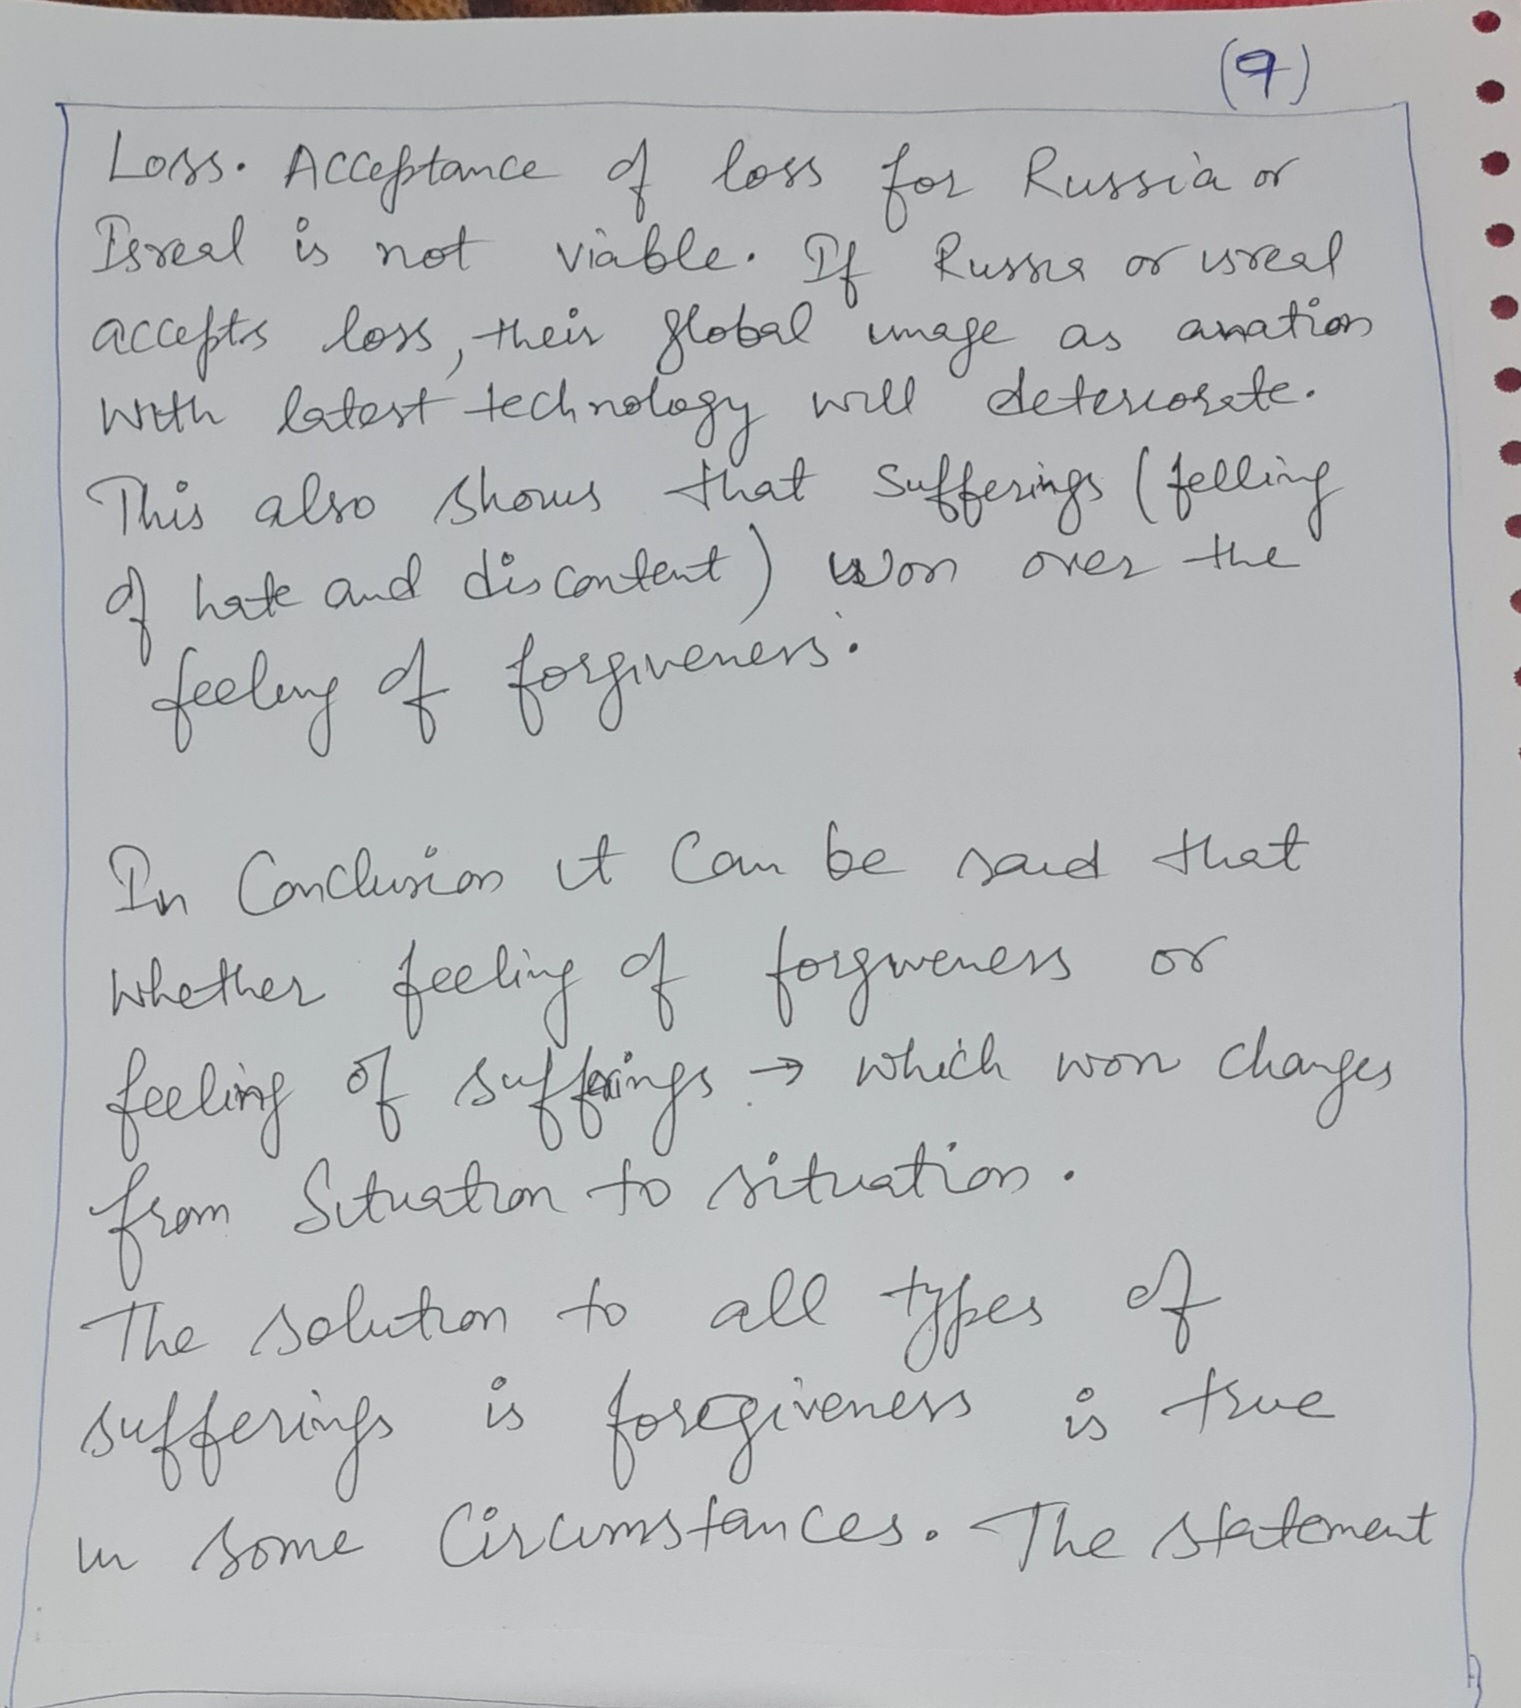 (9)
Loss. Acceptance of loss for Russia or
Isreal is not viable. If Russia or isreal
accepts loss, their global image as a nation
with latest technology will deteriorate.
This also shows that sufferings (felling
of hate and discontent) won over the
feeling of forgiveness.
In Conclusion it can be said that
whether feeling of forgiveness or
feeling of sufferings → which won changes
from Situation to situation.
The solution to all types of
sufferings is foregiveness is true
in some Circumstances. The statement